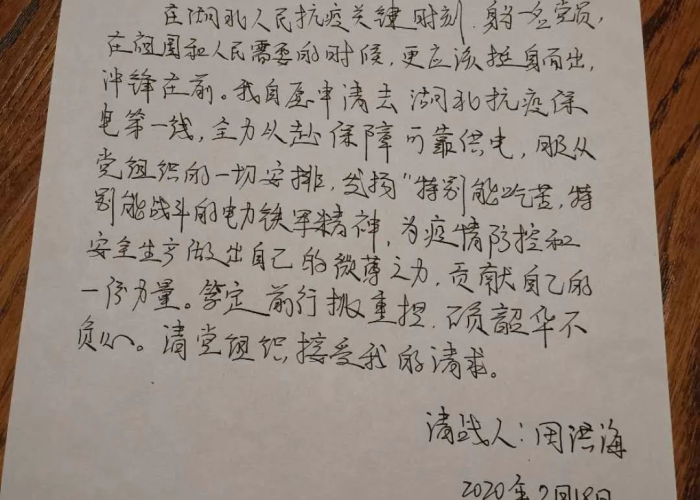 在湖北人民抗疫关键时刻,身为一名党员,
在祖国和人民需要的时候,更应该挺身而出,
冲锋在前。我自愿申请去湖北抗疫保
电第一线,全力以赴保障可靠供电,服从
党组织的一切安排,发扬“特别能吃苦,特
别能战斗的电力铁军精神,为疫情防控和
安全生产做出自己的微薄之力,贡献自己的
一份力量。笃定前行挑重担,硕韶华不
负心。请党组织接受我的请求。
请战人:周洪海
2020年2月18日